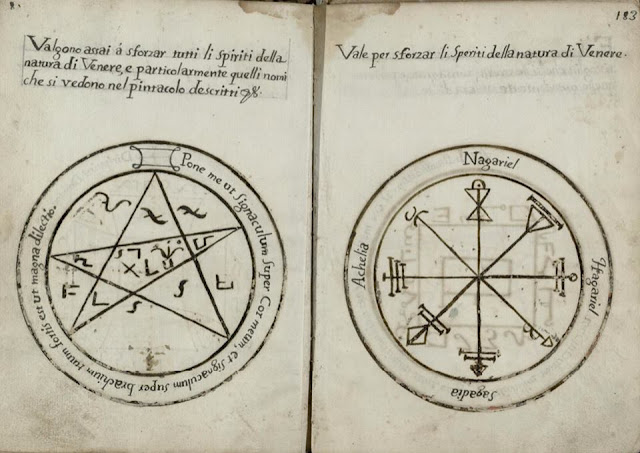 Valgono assai á sforzar tutti li Spiriti della
natura di Venere, e particolarmente quelli nomi
che si vedono nel pintacolo descritti
Pone me ut Signaculum super Cor meum, et signaculum super brachium tuum fortis est ut magna dilectio.
183
Vale per sforzar li Speriti della natura di Venere.
Nagariel
Achelia
Sagadia